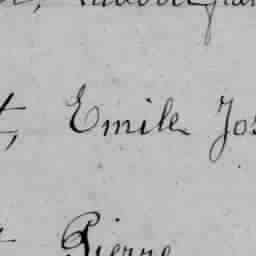 t, Emile Jos
Pierre